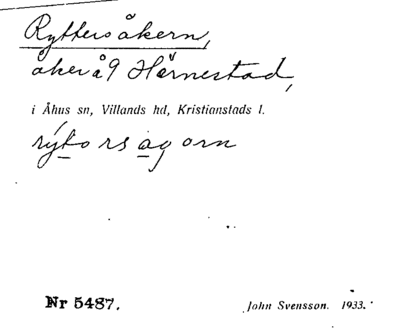 Ryttersåkern,
åker å 9 Hörnestad,
i Åhus sn, Villands hd, Kristianstads l.
rýtorsagorn
Nr 5487.
John Svensson. 1933.